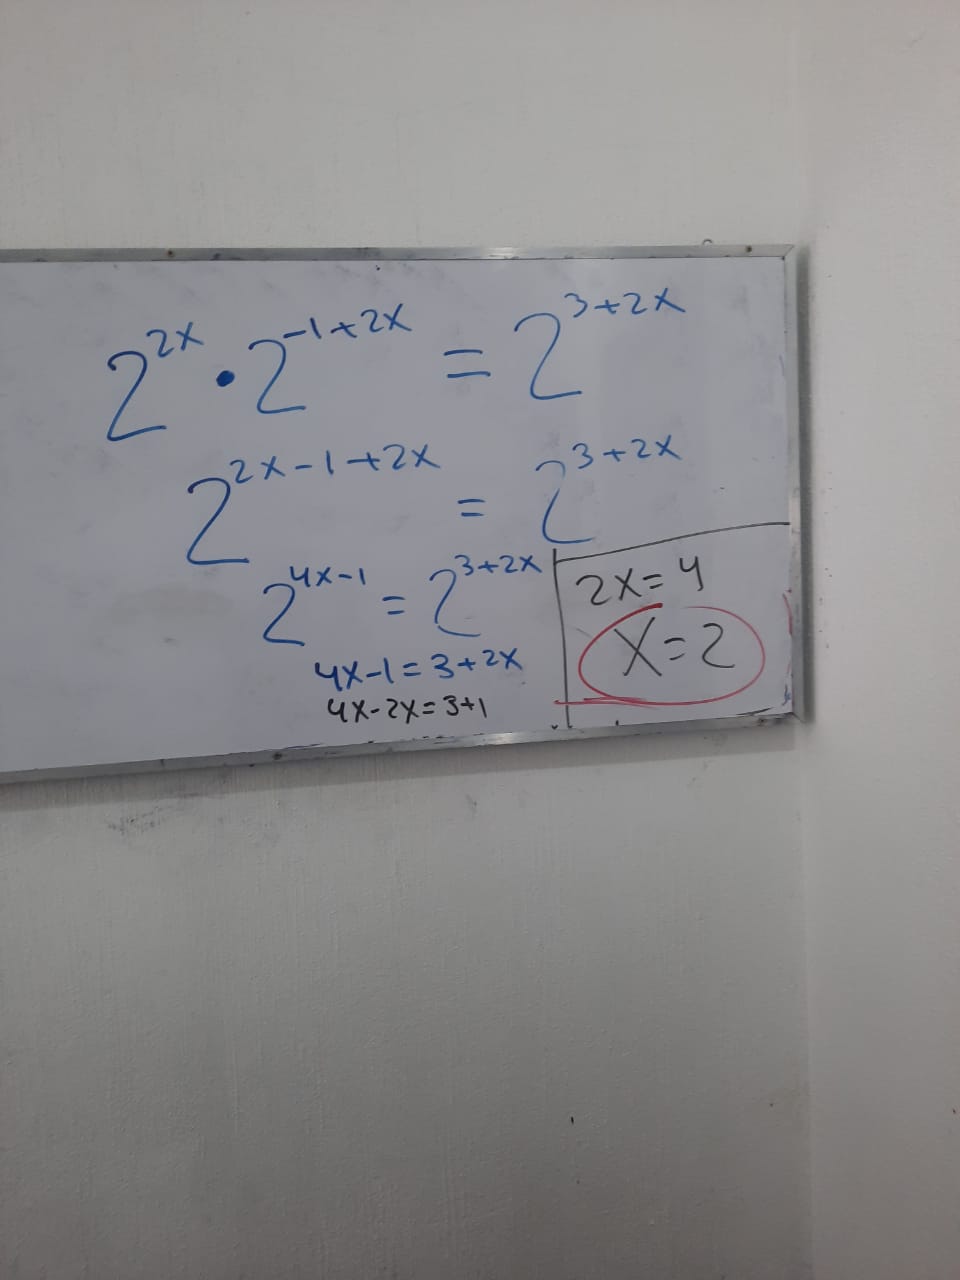 2^{2x} • 2^{-1+2x} = 2^{3+2x}
2^{2x-1+2x} = 2^{3+2x}
2^{4x-1} = 2^{3+2x}
4x-1=3+2x
4x-2x=3+1
2x=4
x=2